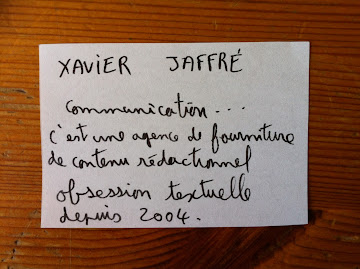 XAVIER JAFFRÉ
Communication...
c'est une agence de fourniture
de contenu rédactionnel
obsession textuelle
depuis 2004.